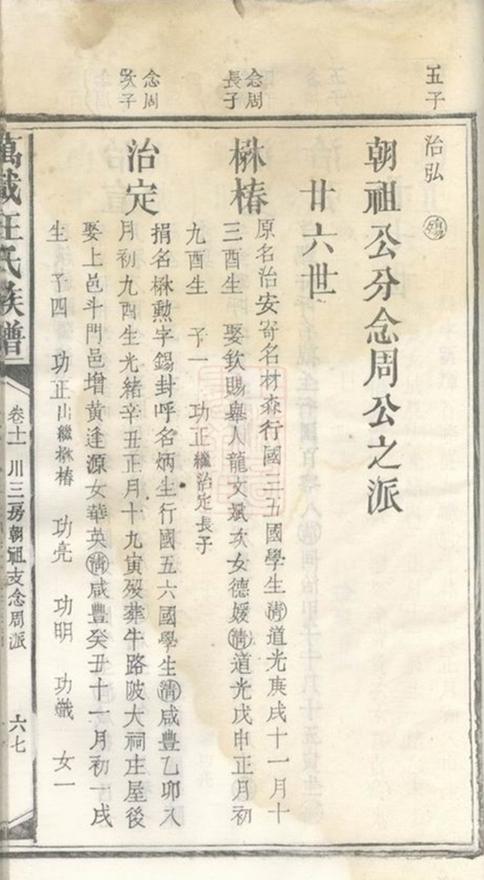 五子
治弘 殤
朝祖公分念周公之派
廿六世
念周
長子
楙椿
原名治安寄名材森行國三五國學生清道光庚戌十一月十
三酉生 娶欽賜舉人龍文斌次女德媛清道光戊申正月初
九酉生 子一 功正繼治定長子
念周
次子
治定
捐名楙勲字錫封呼名炳生行國五六國學生清咸豐乙卯八
月初九酉生光緒辛丑正月十九寅殁葬牛路陂大祠庄屋後
娶上邑斗門邑增黃逢源女華英清咸豐癸丑十一月初一戌
生 子四 功正出繼楙椿 功亮 功明 功 女一
萬載汪氏族譜
卷十一 川三房朝祖支念周派
六七